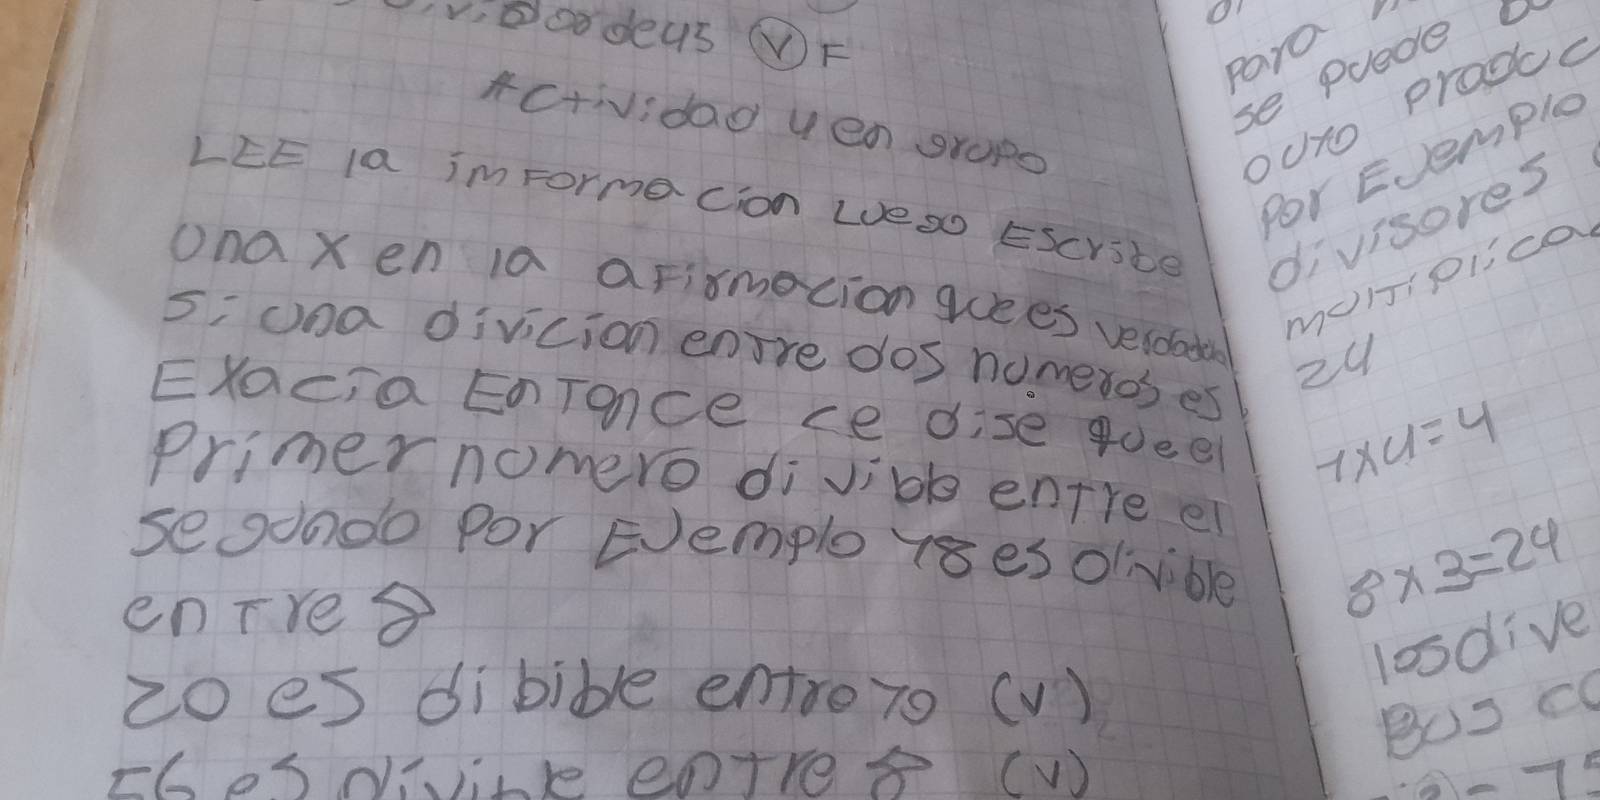 deus V F
Actividad 4 en grupo
LEE la imformacion luego Escribe
una x en la afirmacion que es verdadera
si una divicion entre dos numeros es
Exacta Entonce ce dise que el
Primer numero divible entre el
segundo Por Ejemplo 48 es divible
entre 8
20 es dibible entre 10 (v)
56 es divible entre 8 (v)
para
se puede
outo produc
Por Ejemplo
divisores
multiplica
24
1x4=4
8x3=24
los dive